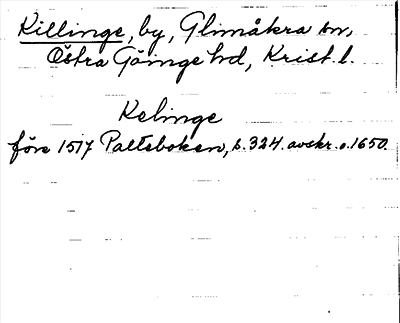 Killinge, by, Glimåkra sn,
Östra Göinge hd, Krist. l.
Kelinge
före 1517 Palteboken, s. 324. avskr. o. 1650.